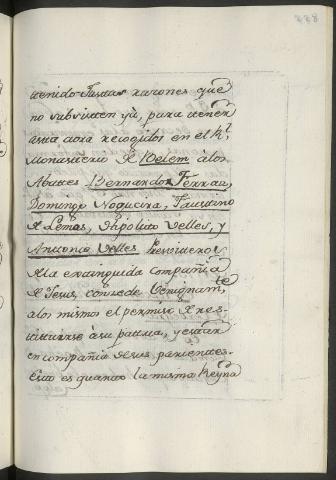 tenido Justas razones que
no subsisten yà, para tener
asta aora recogidos en el Rl.
Monasterio de Belem à los
Abates Bernardo Ferrau,
Domingo Nogueira, Faustino
de Lemos, Hipolito Velles, y
Antonio Velles
de la extinguida Compañia
de Jesus, concede benignamte.
a los mismos el permiso de res-
tituirse à su patria, y estar
en compañia de sus parientes.
Esto es quanto la misma Reyna